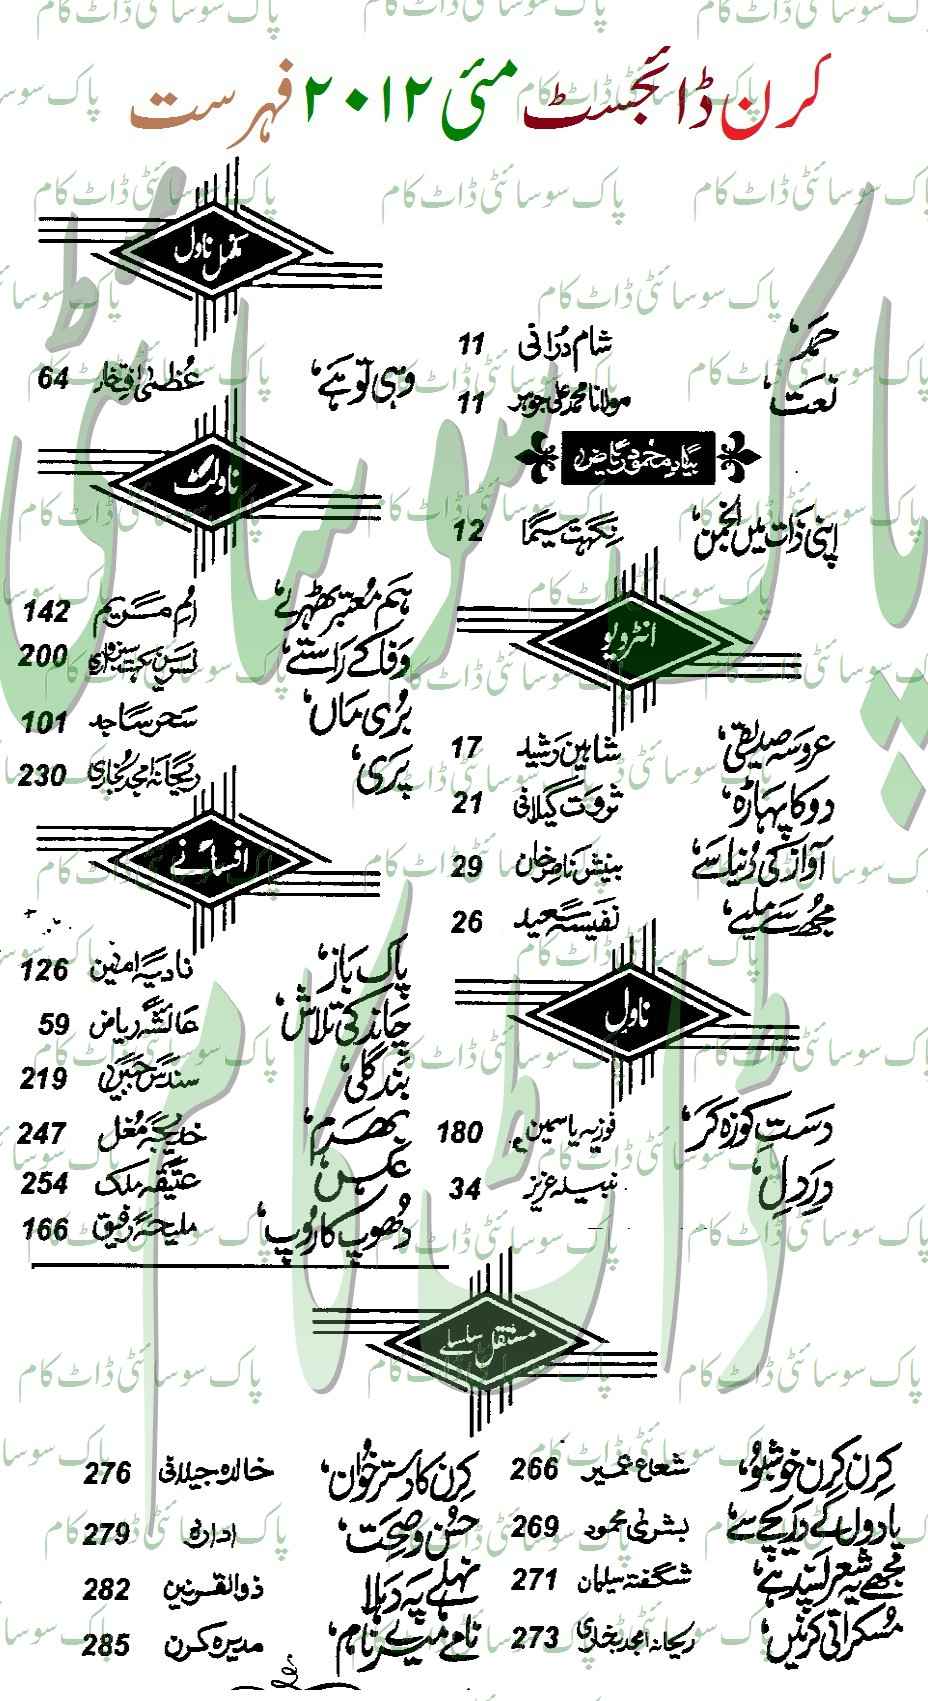 کرن ڈائجسٹ مئی ۲۰۱۲ فہرست
حمد، شام درانی 11
نعت، مولانا محمد علی جوہر 11
بیاد محمود ریاض
اپنی ذات میں انجمن، نگہت سیما 12
انٹرویو
عروسہ صدیقی، شاہین رشید 17
دو کا پہاڑہ، ثروت گیلانی 21
آواز کی دنیا سے، بینش ناصر خان 29
مجھ سے ملیے، نفیسہ سعید 26
ناول
دست کوزہ گر، فوزیہ یاسمین 180
در دل، نبیلہ عزیز 34
مکمل ناول
وہی تو ہے، عظمیٰ افتخار 64
ناولٹ
ہم معتبر ٹھہرے، ام مریم 142
وفا کے راستے، 200
بری ماں، سحر ساجد 101
پری، ریحانہ امجد بخاری 230
افسانے
پاک باز، نادیہ امین 126
چاند کی تلاش، عائشہ ریاض 59
بند گلی، سندس جبیں 219
بھرم، خدیجہ مغل 247
عکس، عتیقہ ملک 254
دھوپ کا روپ، ملیحہ رفیق 166
مستقل سلسلے
کرن کرن خوشبو، شعاع عمیر 266
یادوں کے دریچے سے، بشریٰ محمود 269
مجھے یہ شعر پسند ہے، شگفتہ سلیمان 271
مسکراتی کرنیں، ریحانہ امجد بخاری 273
کرن کا دسترخوان، خالدہ جیلانی 276
حسن و صحت، ادارہ 279
نہلے پہ دہلا ذوالقرنین 282
نامے میرے نام، مدیرہ کرن 285
پاک سوسائٹی ڈاٹ کام